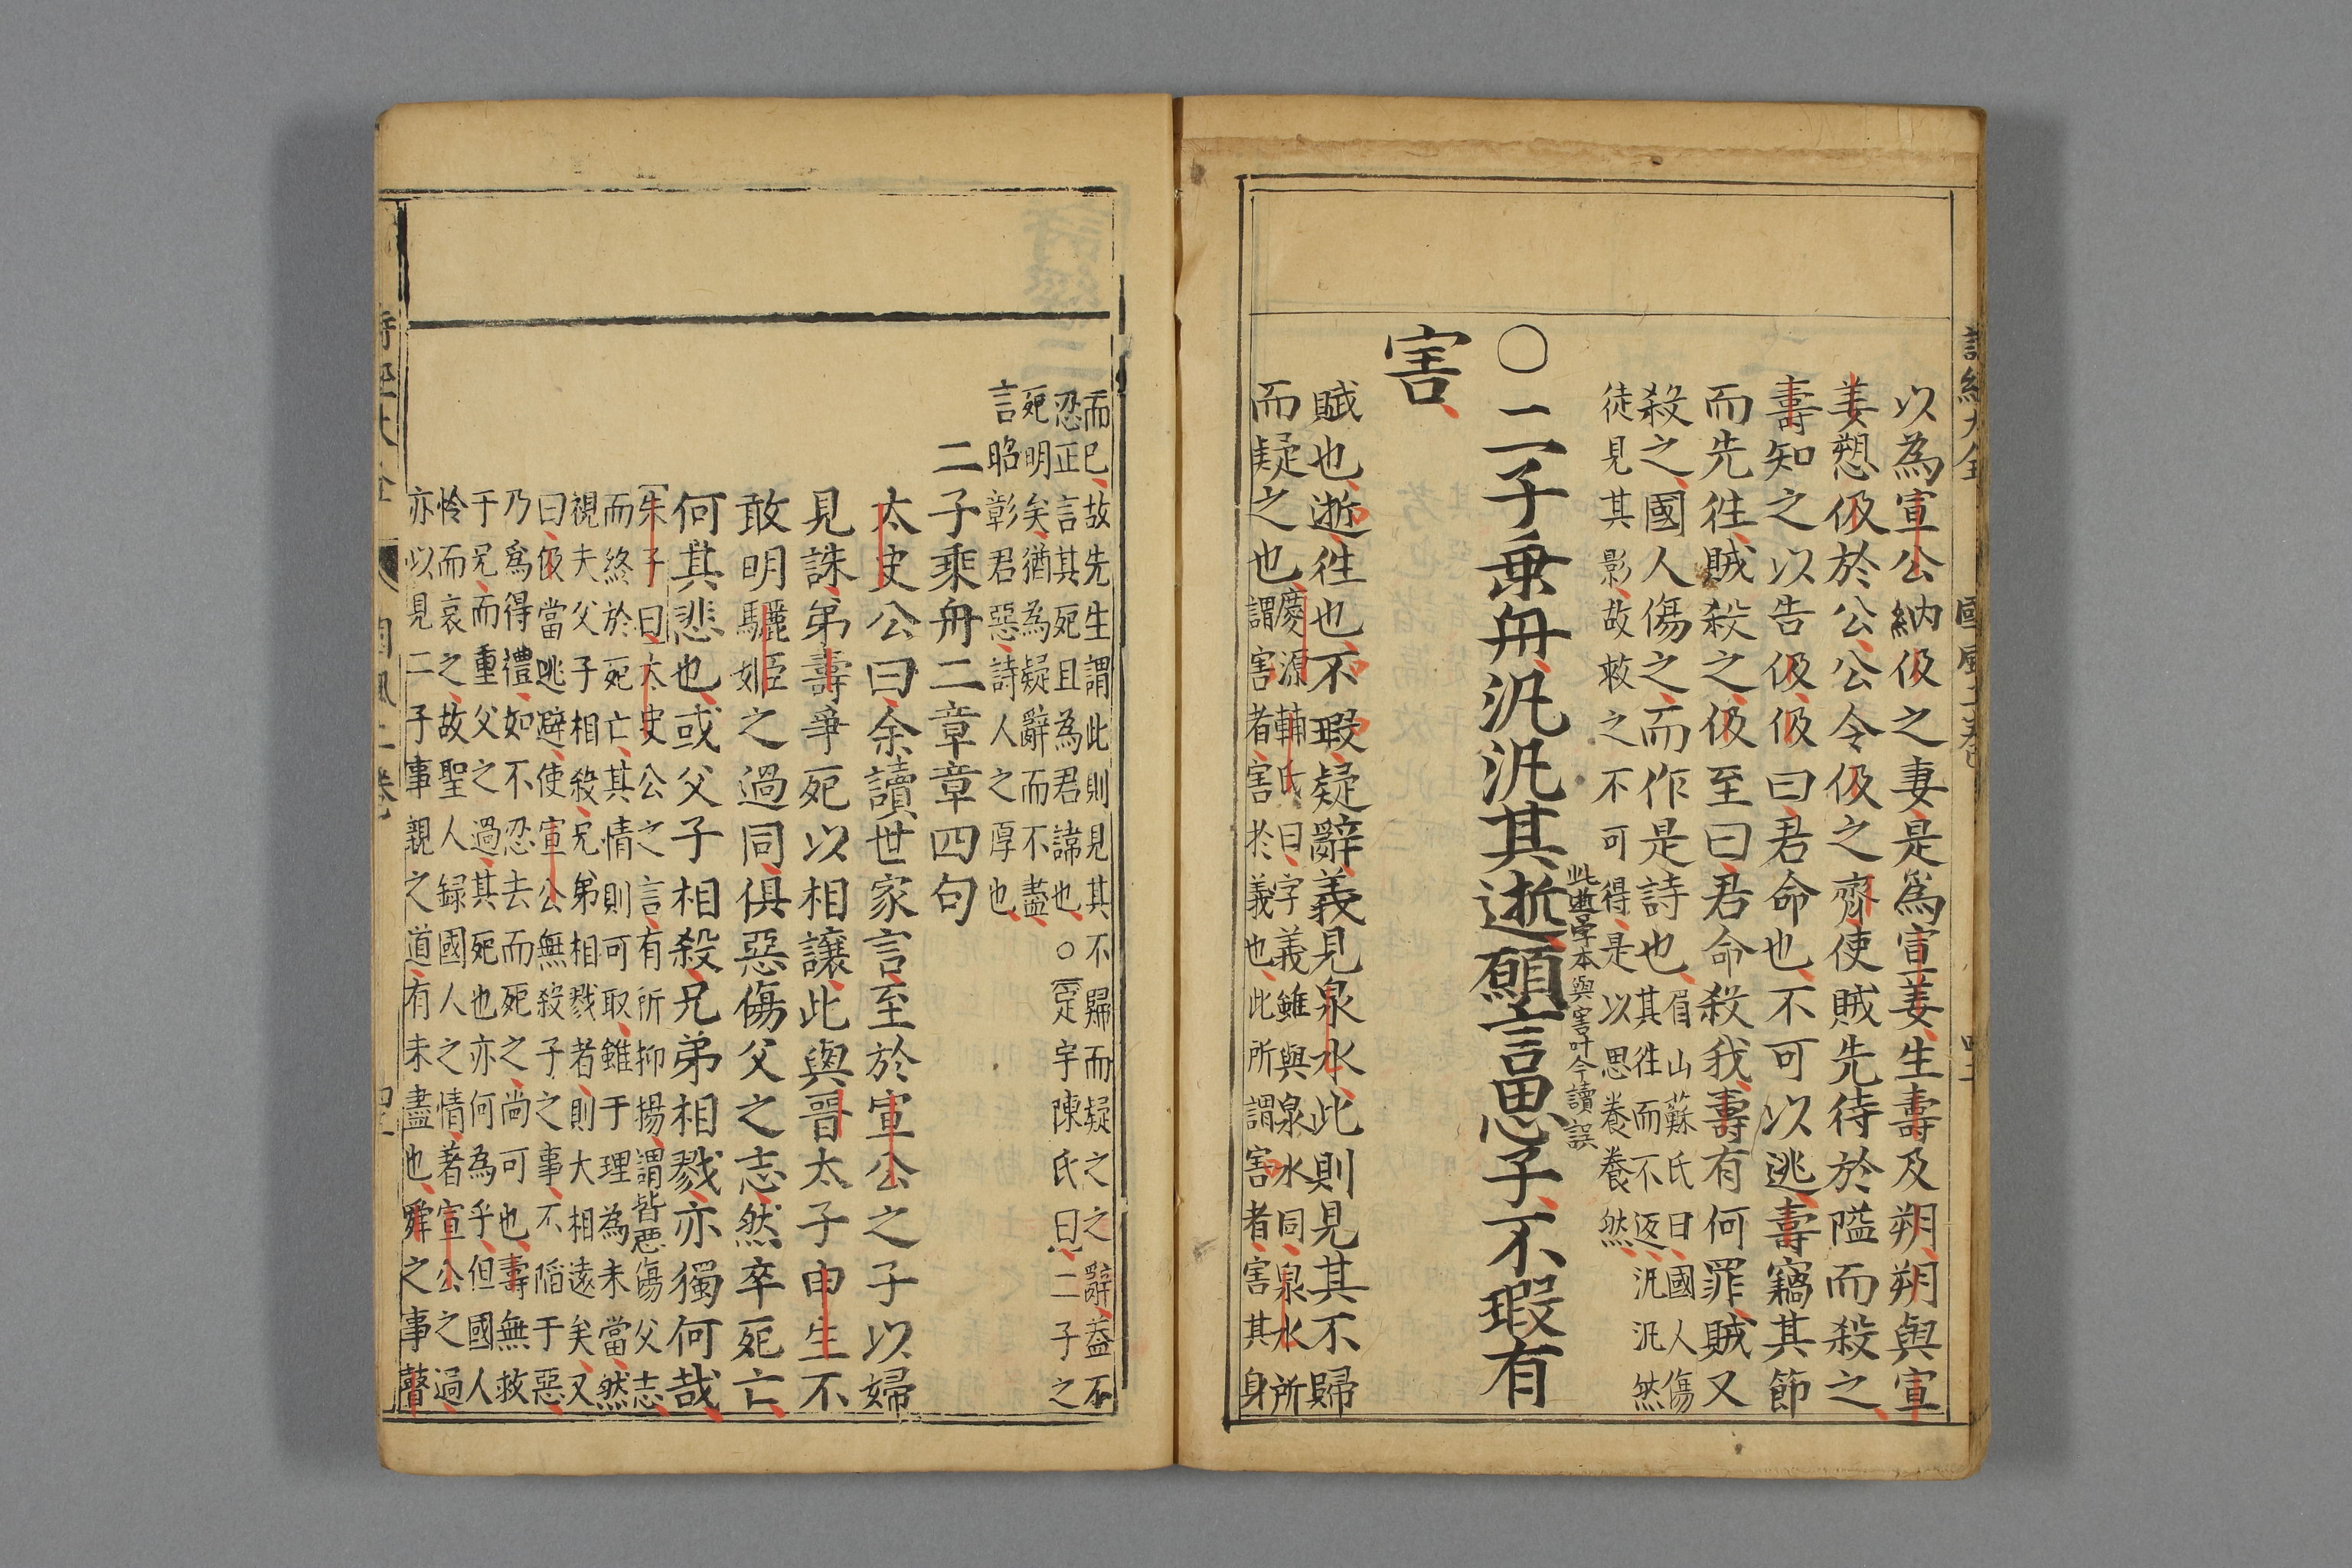 詩經大全 國風二卷
以為宣公納伋之妻是爲宣姜生壽及朔朔與宣
姜愬伋於公公令伋之齊使賊先待於隘而殺之
壽知之以告伋伋曰君命也不可以逃壽竊其節
而先往賊殺之伋至曰君命殺我壽有何罪賊又
殺之國人傷之而作是詩也眉山蘇氏曰國人傷
其往而不返汎汎然
徒見其影故救之不可得是以思養養然
此逝字本與害叶今讀誤
○二子乗舟汎汎其逝願言思子不瑕有
害
賦也逝往也不瑕疑辭義見泉水此則見其不歸
而疑之也慶源輔氏曰字義雖與泉水同泉水所
謂害者害於義也此所謂害者害其身
而已故先生謂此則見其不歸而疑之之辭葢不
忍正言其死且為君諱也○定宇陳氏曰二子之
死明矣猶為疑辭而不盡
言昭彰君惡詩人之厚也
二子乘舟二章章四句
太史公曰余讀世家言至於宣公之子以婦
見誅弟壽爭死以相讓此與晉太子申生不
敢明驪姬之過同俱惡傷父之志然卒死亡
何其悲也或父子相殺兄弟相戮亦獨何哉
朱子曰太史公之言有所抑揚謂皆惡傷父志
而終於死亡其情則可取雖于理為未當然
視夫父子相殺兄弟相戮者則大相遠矣又
曰伋當逃避使宣公無殺子之事不陷于惡
乃爲得禮如不忍去而死之尚可也壽無救
于兄而重父之過其死也亦何為乎但國人
怜而哀之故聖人録國人之情著宣公之過
亦以見二子事親之道有未盡也舜之事瞽